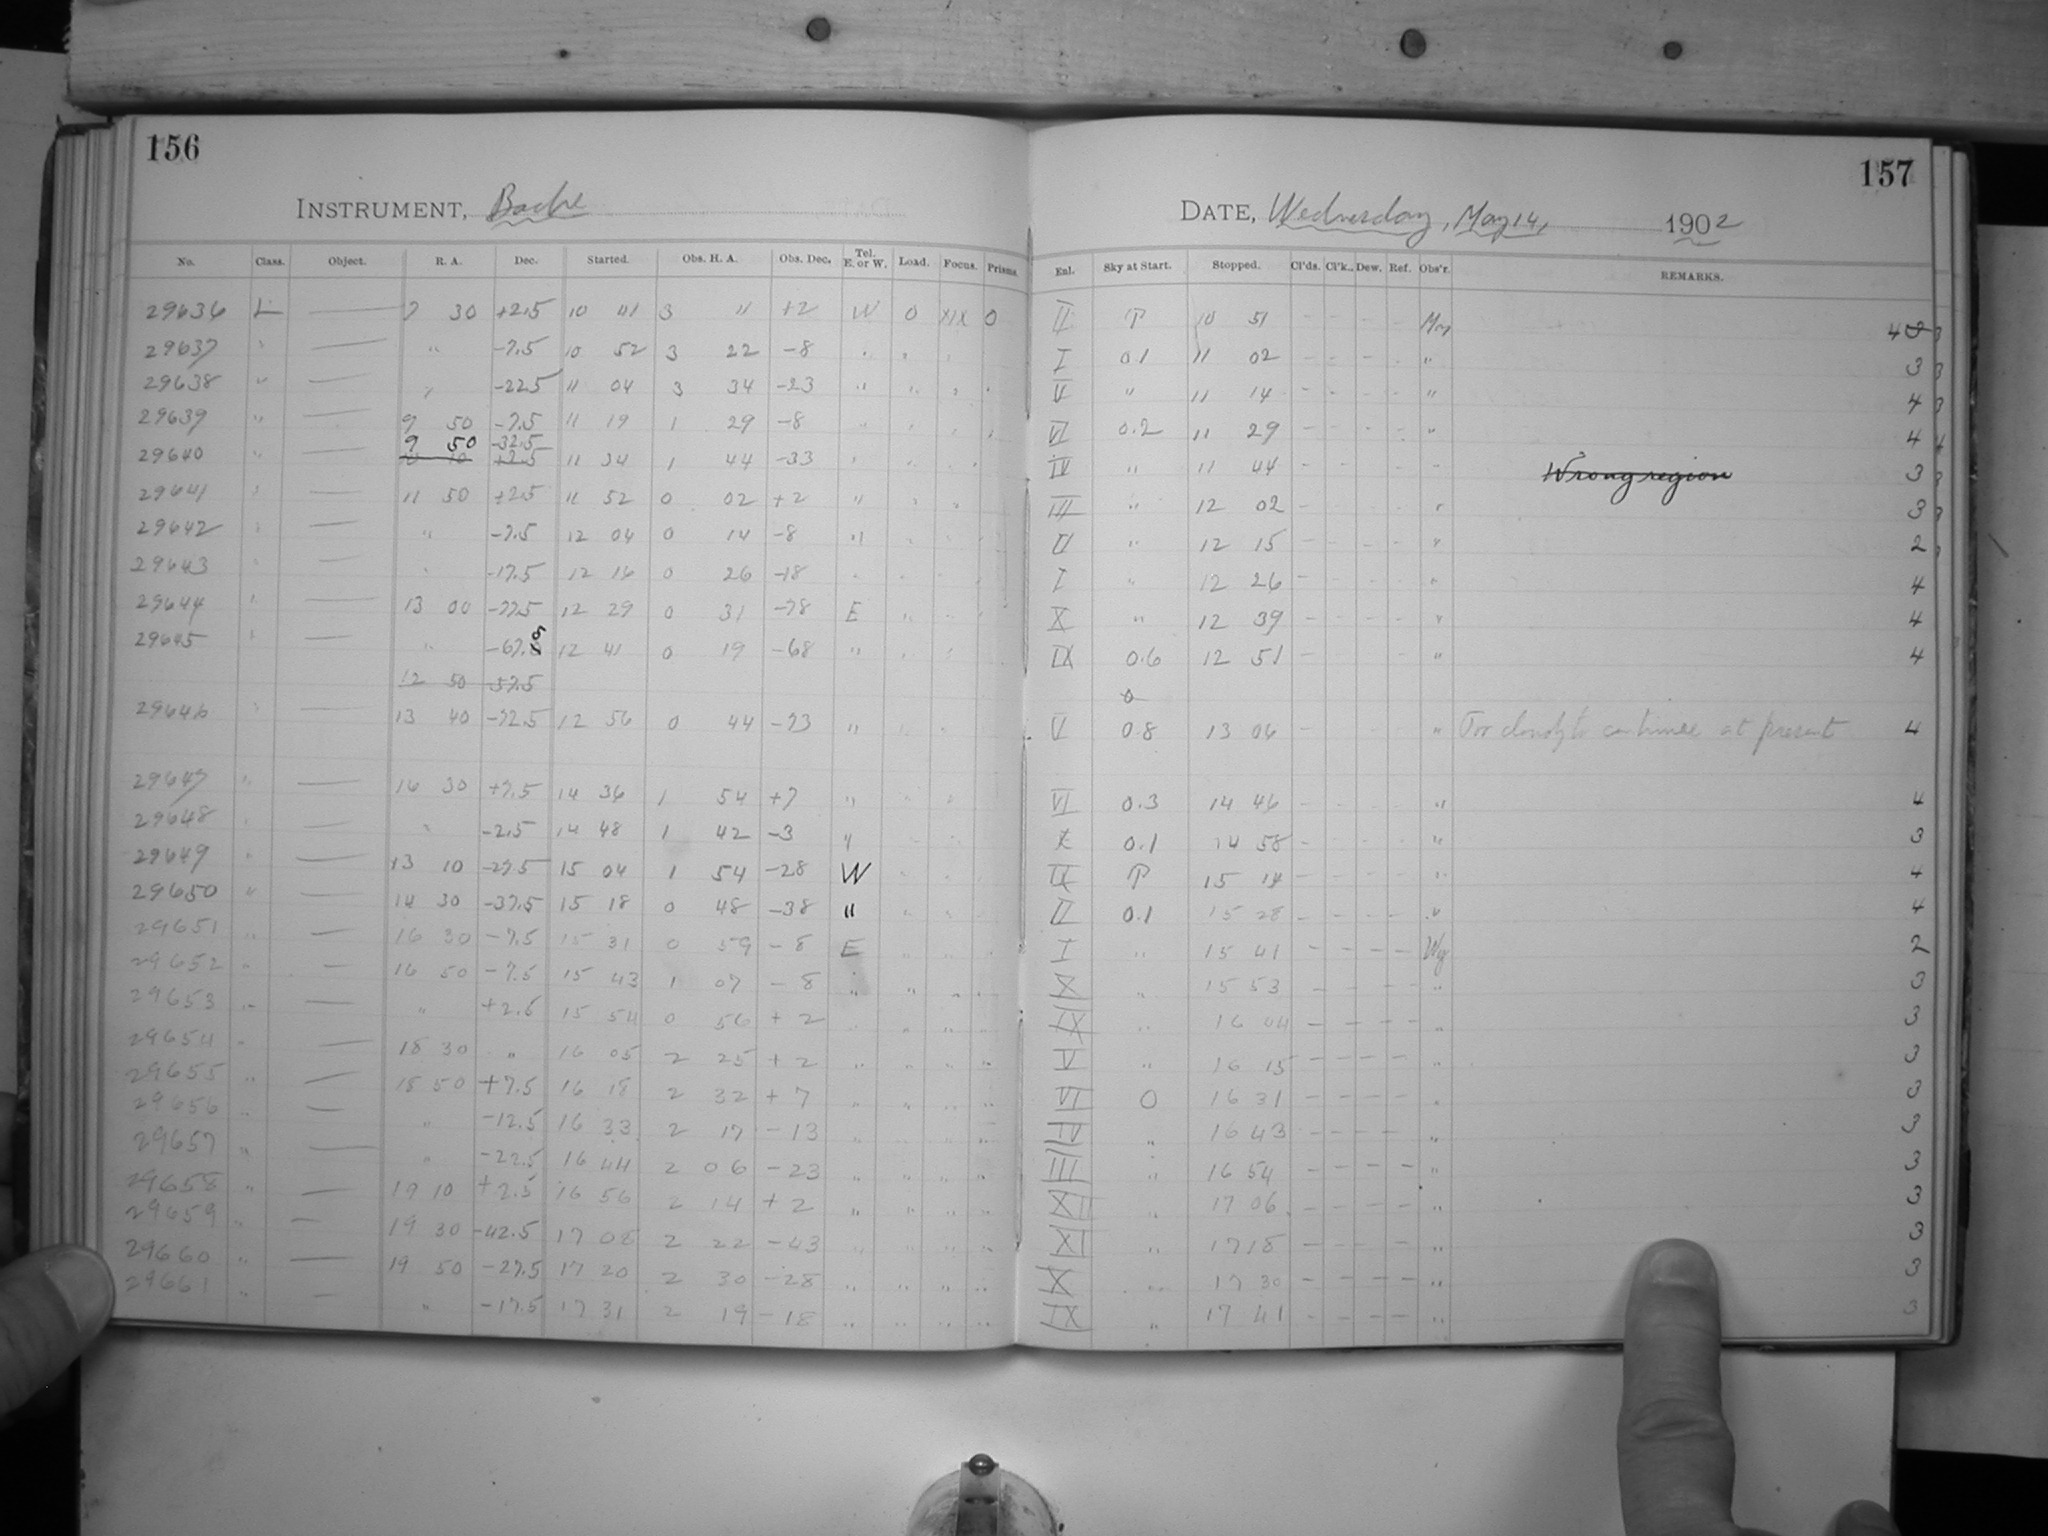 156
INSTRUMENT, Bache
No. Class. Object. R. A. Dec. Started. Obs. H. A. Obs. Dec. Tel. E. or W. Load. Focus. Prisms.
29636 L — 7 30 +2.5 10 41 3 11 +2 W 0 XIX 0
29637 " — " -7.5 10 52 3 22 -8 " " "
29638 " — " -22.5 11 04 3 34 -23 " " " "
29639 " — 9 50 -7.5 11 19 1 29 -8 " " " "
9 50 -32.5
29640 " — 10 10 +2.5 11 34 1 44 -33 " " "
29641 " — 11 50 +2.5 11 52 0 02 +2 " " "
29642 " — " -7.5 12 04 0 14 -8 " " "
29643 " — " -17.5 12 16 0 26 -18 " " "
29644 " — 13 00 -77.5 12 29 0 31 -78 E " "
29645 " — " -67.5 12 41 0 19 -68 " " "
12 50 -57.5
29646 " — 13 40 -72.5 12 56 0 44 -73 " " "
29647 " — 16 30 +7.5 14 36 1 54 +7 " " "
29648 " — " -2.5 14 48 1 42 -3 " " "
29649 " — 13 10 -27.5 15 04 1 54 -28 W " "
29650 " — 14 30 -37.5 15 18 0 48 -38 " " "
29651 " — 16 30 -7.5 15 31 0 59 -8 E " " "
29652 " — 16 50 -7.5 15 43 1 07 -8 " " " "
29653 " — " +2.5 15 54 0 56 +2 " " " "
29654 " — 18 30 " 16 05 2 25 +2 " " " "
29655 " — 18 50 +7.5 16 18 2 32 +7 " " " "
29656 " — " -12.5 16 33 2 17 -13 " " " "
29657 " — " -22.5 16 44 2 06 -23 " " " "
29658 " — 19 10 +2.5 16 56 2 14 +2 " " " "
29659 " — 19 30 -42.5 17 08 2 22 -43 " " " "
29660 " — 19 50 -27.5 17 20 2 30 -28 " " " "
29661 " — " -17.5 17 31 2 19 -18 " " " "
157
DATE, Wednesday, May 14, 1902
Enl. Sky at Start. Stopped. Cl'ds. Cl'k. Dew. Ref. Obs'r. REMARKS.
II P 10 51 - - - - 4
I 0.1 11 02 - - - - " 3
V " 11 14 - - - - " 4
VI 0.2 11 29 - - - - " 4
IV " 11 44 - - - - " Wrong region 3
III " 12 02 - - - - " 3
II " 12 15 - - - - " 2
I " 12 26 - - - - " 4
X " 12 39 - - - - " 4
IX 0.6 12 51 - - - - " 4
V 0.8 13 06 - - - - " Too cloudy to continue at present 4
VI 0.3 14 46 - - - - " 4
X 0.1 14 58 - - - - " 3
IX P 15 14 - - - - " 4
II 0.1 15 28 - - - - " 4
I " 15 41 - - - - 2
X " 15 53 - - - - " 3
IX " 16 04 - - - - " 3
V " 16 15 - - - - " 3
VI 0 16 31 - - - - " 3
IV " 16 43 - - - - " 3
III " 16 54 - - - - " 3
XII " 17 06 - - - - " 3
XI " 17 18 - - - - " 3
X " 17 30 - - - - " 3
IX " 17 41 - - - - " 3